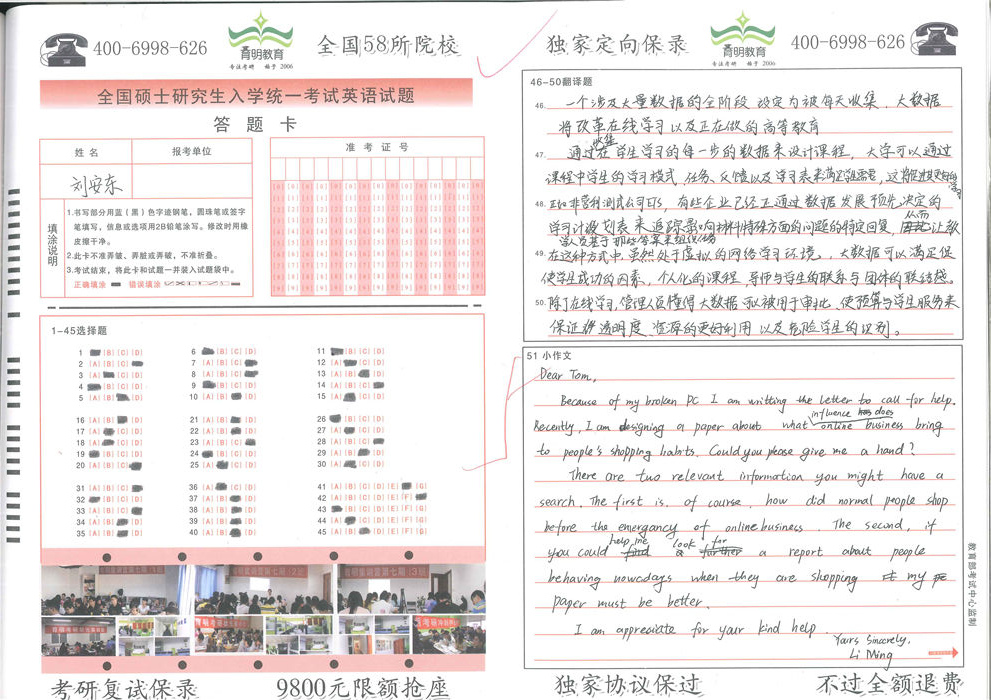 400-6998-626
育明教育
专注考研 始于 2006
全国58所院校
全国硕士研究生入学统一考试英语试题
答 题 卡
姓 名
报考单位
刘安东
准 考 证 号
填涂说明
1.书写部分用蓝(黑)色字迹钢笔，圆珠笔或签字
笔填写，信息或选项用2B铅笔涂写。修改时用橡
皮擦干净。
2.此卡不准弄破、弄脏或弄破，不准折叠。
3.考试结束，将此卡和试题一并装入试题袋中。
正确填涂
错误填涂
1-45选择题
考研复试保录
9800元限额抢座
独家定向保录
育明教育
专注考研 始于 2006
400-6998-626
46-50翻译题
46. 一个涉及大量数据的全阶段 设定为被每天收集，大数据
将改革在线学习以及正在做的高等教育
47. 通过收集学生学习的每一步的数据来设计课程，大学可以通过
课程中学生的学习模式，任务、反馈以及学习表来满足学生需要，
48. 正如非营利测试公司ETS，有些企业已经正通过数据发展预先决定的
学习计划表来追踪影响材料特殊方面的问题的特定回复，从而让教
49. 在这种方式中，虽然处于虚拟的网络学习环境，大数据可以满足促
使学生成功的因素，个人化的课程，导师与学生的联系与团体的联结感。
50. 除了在线学习，管理人员懂得大数据可以被用于审批，使预算与学生服务来
保证透明度，资源的更好利用以及危险学生的识别。
51 小作文
Dear Tom,
Because of my broken PC I am writting the letter to call for help.
Recently, I am designing a paper about what influence does online business bring
to people's shopping habits. Could you please give me a hand?
There are two relevant information you might have a
search. The first is, of course, how did normal people shop
before the emergancy of online business. The second, if
you could help me look for a report about people
behaving nowadays when they are shopping my
paper must be better.
I am appreciate for your kind help.
Yours Sincerely,
Li Ming
教育部考试中心监制
独家协议保过
不过全额退费